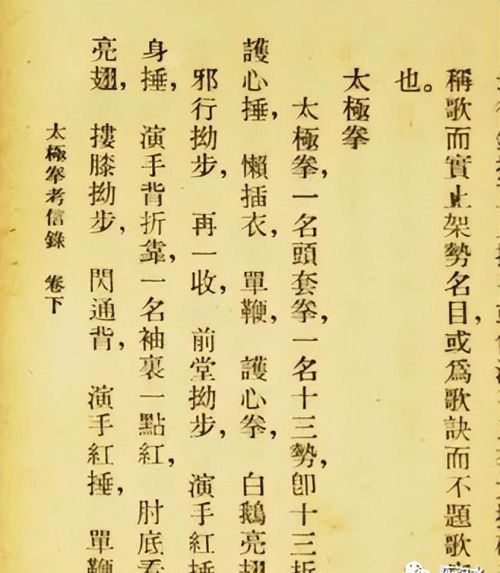 稱歌而實止架勢名目，或爲歌訣而不題歌
也。
太極拳
太極拳，一名頭套拳，一名十三勢，卽十三折
護心捶，懶插衣，單鞭，護心拳，白鵝亮翅
邪行拗步，再一收，前堂拗步，演手紅捶
身捶，演手背折靠，一名袖裏一點紅，肘底看
亮翅，摟膝拗步，閃通背，演手紅捶，單鞭
太極拳考信錄 卷下